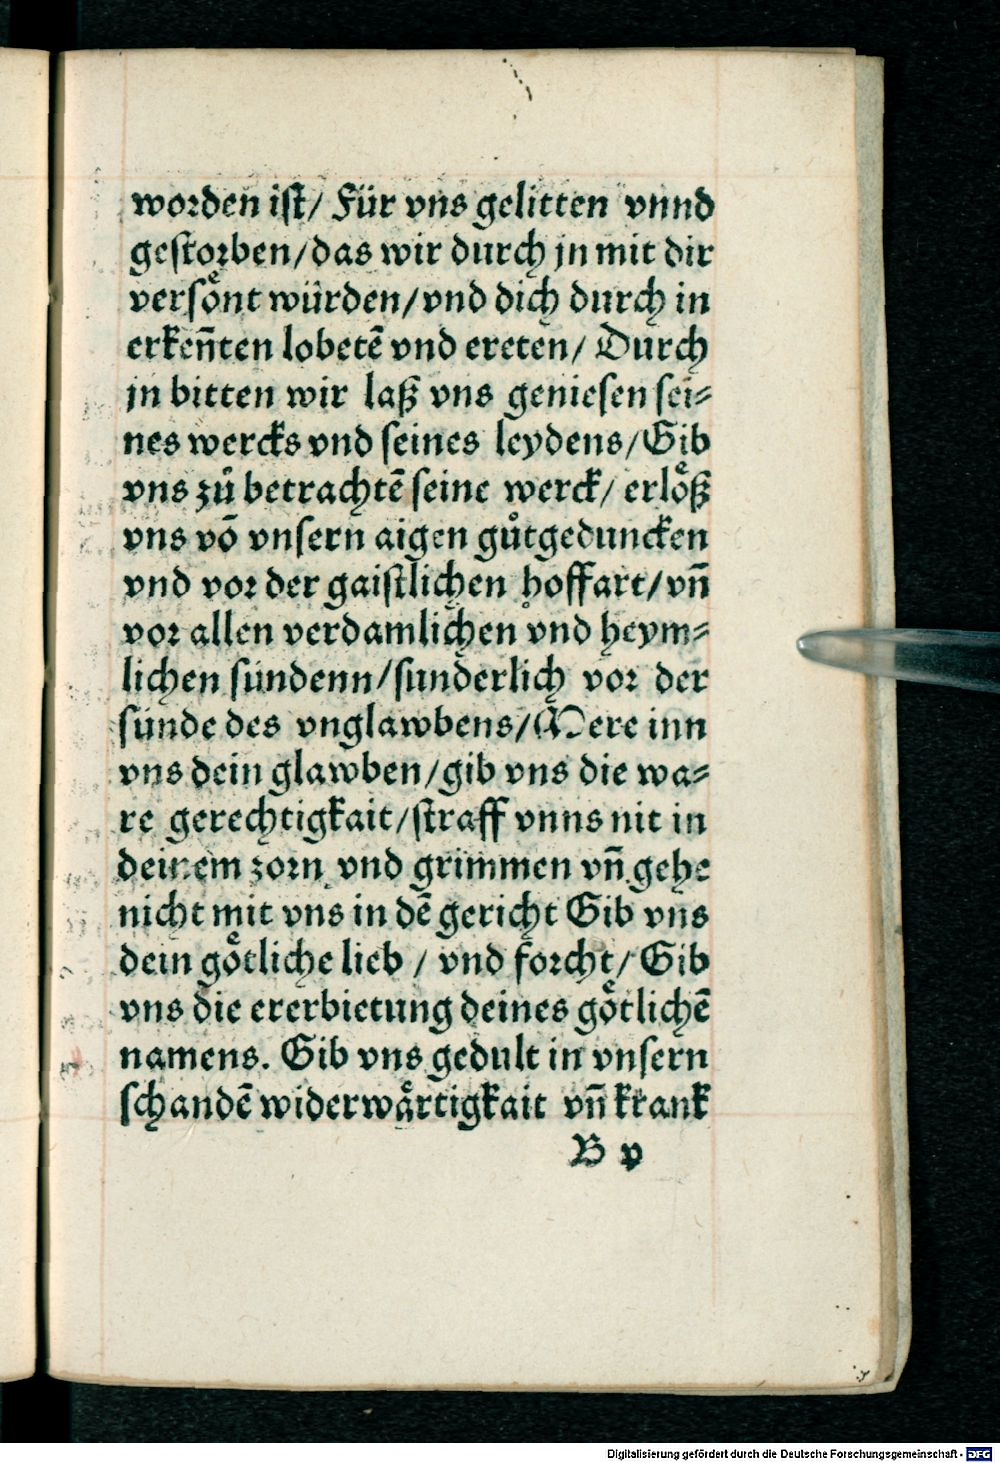 worden ist/ Für vns gelitten vnnd
gestorben/das wir durch jn mit dir
versoͤnt würden/vnd dich durch in
erkeñten lobetē vnd ereten/ Durch
jn bitten wir laß vns geniesen sei⸗
nes wercks vnd seines leydens/Gib
vns zů betrachtē seine werck/ erloͤß
vns vō vnsern aigen gůtgeduncken
vnd vor der gaistlichen hoffart/vñ
vor allen verdamlichen vnd heym⸗
lichen sünden̄/sunderlich vor der
sünde des vnglawbens/Mere inn
vns dein glawben/gib vns die wa⸗
re gerechtigkait/straff vnns nit in
deinem zorn vnd grimmen vñ gehe
nicht mit vns in dē gericht Gib vns
dein goͤtliche lieb / vnd forcht/ Gib
vns die ererbietung deines goͤtlichē
namens. Gib vns gedult in vnsern
schandē widerwaͤrtigkait vñ krank
B v
Digitalisierung gefördert durch die Deutsche Forschungsgemeinschaft - DFG